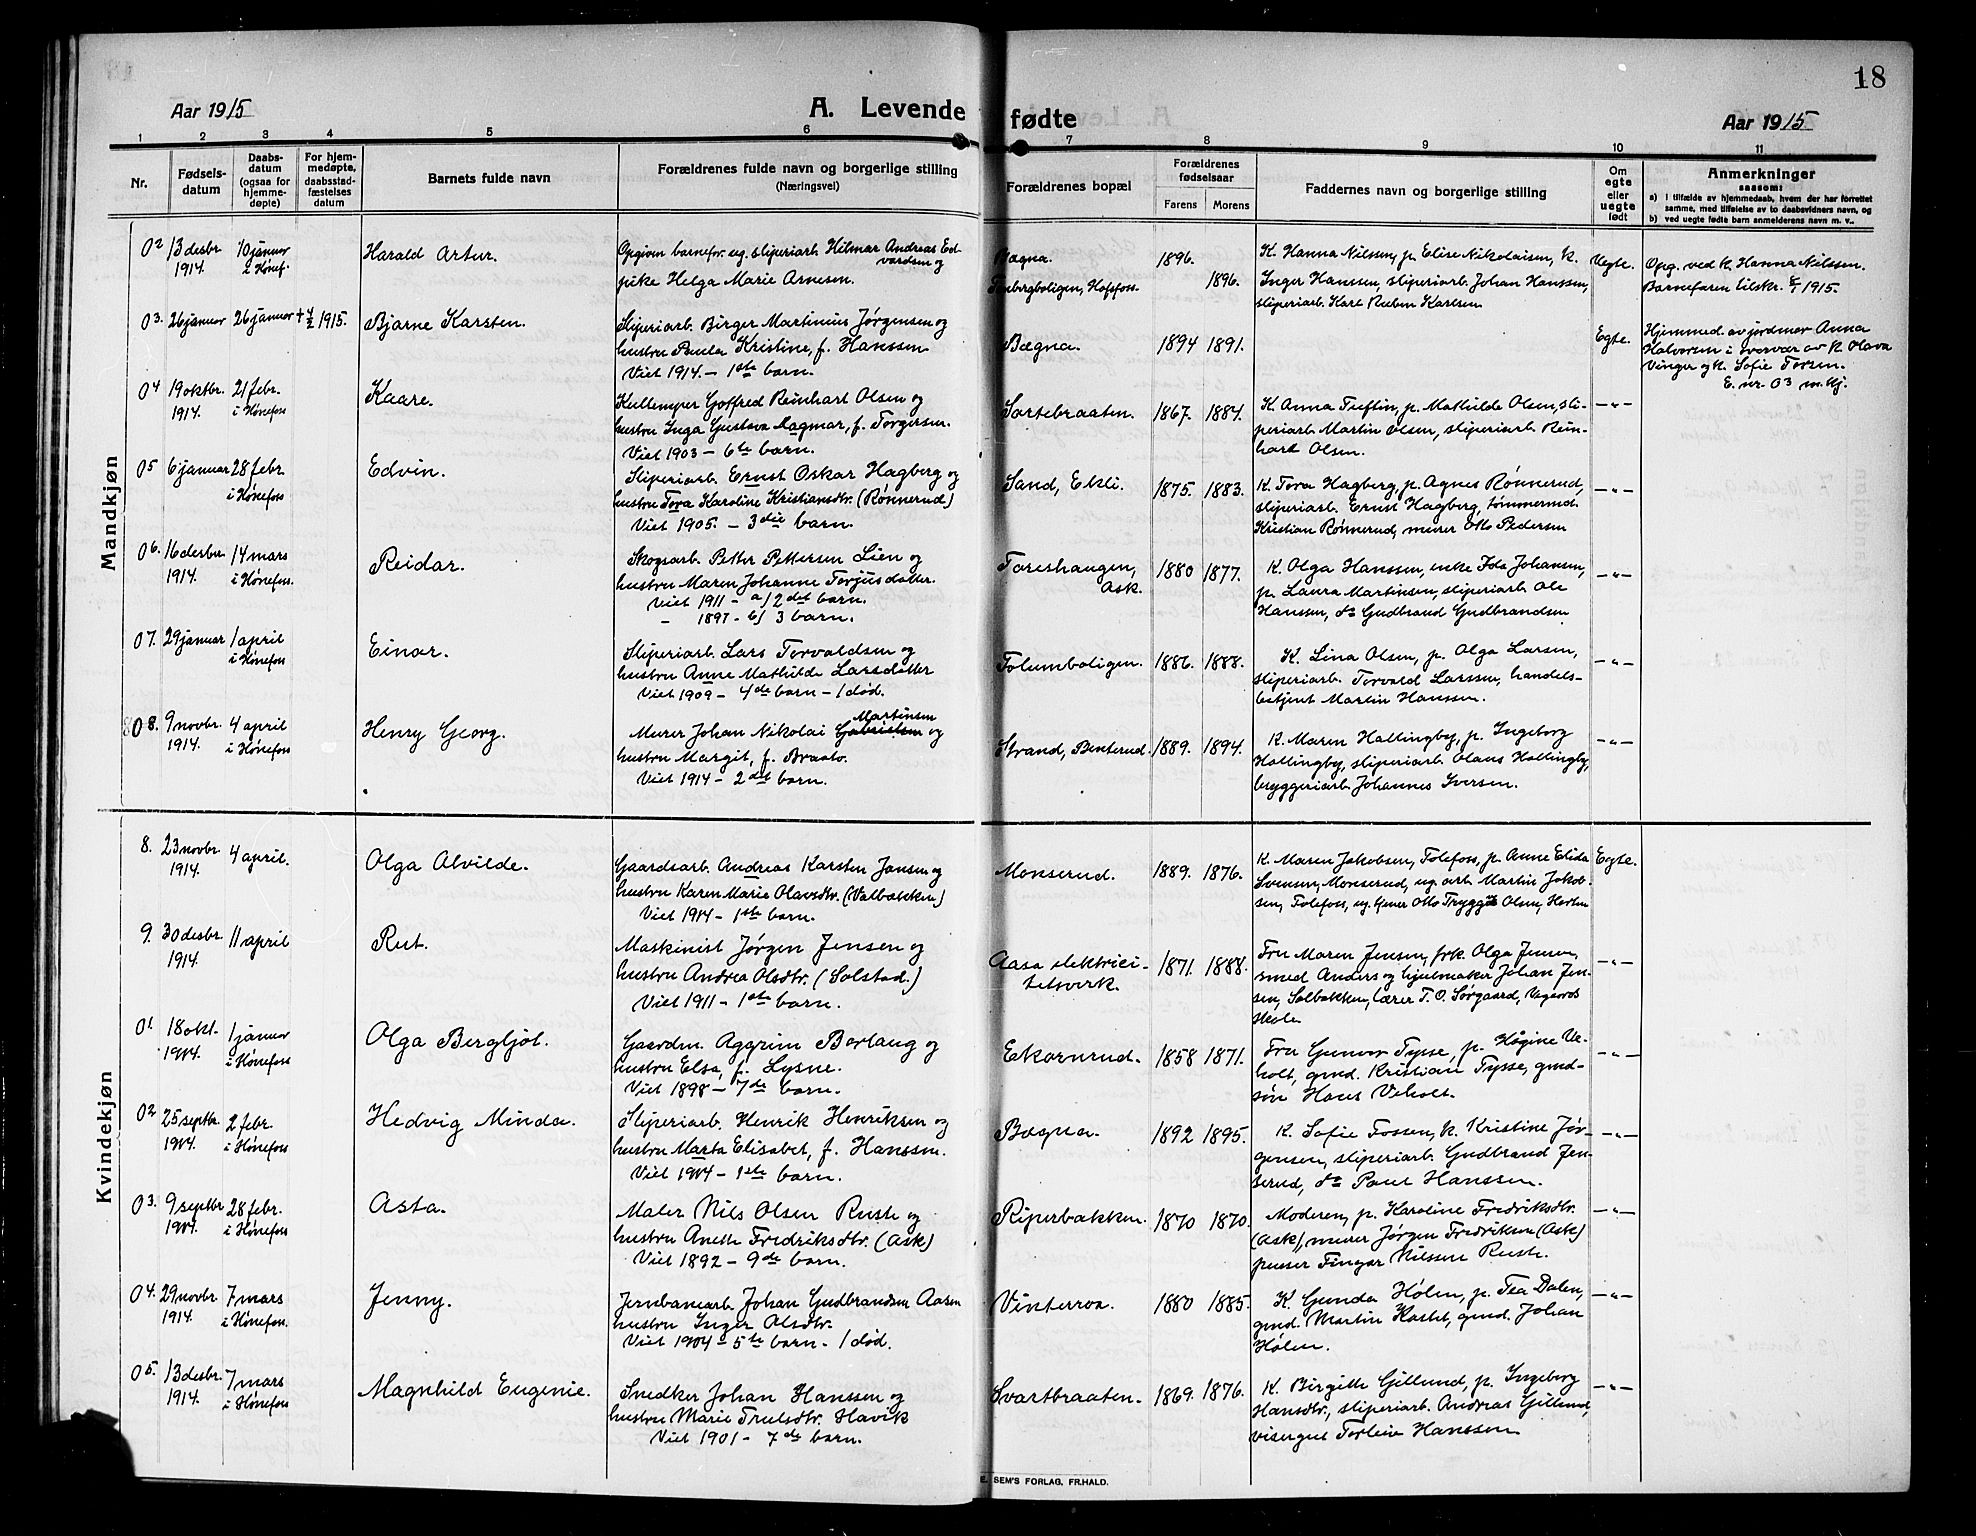 18
Aar 1915
A. Levende fødte
Aar 1915
1 2 3 4 5 6 7 8 9 10 11
Nr.
Fødsels-
datum
Daabs-
datum
(ogsaa for
hjemme-
døpte)
For hjem-
medøpte,
daabsstad-
fæstelses
datum
Barnets fulde navn
Forældrenes fulde navn og borgerlige stilling
(Næringsvei)
Forældrenes bopæl
Forældrenes
fødselsaar
Farens Morens
Faddernes navn og borgerlige stilling
Om
egte
eller
uegte
født
Anmerkninger
saasom:
a) i tilfælde av hjemmedaab, hvem der har forrettet
samme, med tilføielse av to daabsvidners navn, og
b) ved uegte fødte barn anmelderens navn m. v.,
Mandkjøn
02 13 desbr. 1914. 10 januar i Hønef.
Harald Artur.
Opgiven barnefar ug. sliperiarb. Hilmar Andreas Ed-
vardsen og
pike Helga Marie Arnesen.
Bægna.
Hofsfoss.
1896. 1896.
K. Hanna Nilssen, p. Elise Nikolaisen, k.
Inger Hanssen, sliperiarb. Johan Hanssen,
sliperiarb. Karl Ruben Karlsen
Uegte.
Opg. ved k. Hanna Nilssen.
Barnefaren tilskr. 1915.
03. 26 januar 26 januar + 4/2 1915.
Bjarne Karsten.
Sliperiarb. Birger Martinius Jørgensen og
hustru Paula Kristine, f. Hanssen
Viet 1914. - 1ste barn.
Bægna.
1894 1891.
Egte.
Hjemmed. av jordmor Anna
Halvorsen i nærvær av k. Olava
Vinger og k. Sofie Fossen.
E. nr. 03 m. kj.
04 19 oktbr. 1914. 21 febr. i Hønefoss
Kaare.
Kullemper Gotfred Reinhart Olsen og
hustru Inga Gustava Dagmar, f. Torgersen.
Viet 1903 - 6te barn.
Sortebraaten.
1867. 1884.
K. Anna Tuftin, p. Mathilde Olsen, sli-
periarb. Martin Olsen, sliperiarb. Rein-
hart Olsen.
-"-
05 6 januar 28 febr. i Hønefoss
Edvin.
Sliperiarb. Ernst Oskar Hagberg og
hustru Tora Karoline Kristiansdtr. (Rønnerud)
Viet 1905. - 3die barn.
Sand, Ekli.
1875. 1883.
K. Tora Hagberg, p. Agnes Rønnerud,
sliperiarb. Ernst Hagberg, tømmermd.
Kristian Rønnerud, murer Otto Pedersen
-"-
06. 16 desbr. 1914. 14 mars i Hønefoss.
Reidar.
Skogsarb. Petter Pettersen Lien og
hustru Maren Johanne Torjusdatter.
Viet 1911 - a) 2det barn.
- 1897 - b) 3 barn.
Foreshaugen,
Ask.
1880 1877.
K. Olga Hanssen, enke Ida Johansen,
p. Laura Martinsen, sliperiarb. Ole
Hanssen, do Gudbrand Gudbrandsen
-"-
07. 29 januar 1 april i Hønefoss
Einar.
Sliperiarb. Lars Torvaldsen og
hustru Anne Mathilde Larsdatter
Viet 1909 - 4de barn - 1 død.
Folumboligen.
1886. 1888.
K. Lina Olsen, p. Olga Larsen,
sliperiarb. Torvald Larssen, handels-
betjent Martin Hanssen.
-"-
08. 9 novbr. 1914. 4 april i Hønefoss
Henry Georg.
Martinsen
Murer Johan Nikolai Gabrielsen og
hustru Margit, f. Braato.
Viet 1914 - 2det barn.
Strand, Benterud.
1889. 1894.
K. Maren Hallingby, p. Ingeborg
Hallingby, sliperiarb. Olaus Hallingby,
bryggeriarb. Johannes Iversen.
-"-
Kvindekjøn
8. 23 novbr. 1914. 4 april.
Olga Alvilde.
Gaardsarb. Andreas Karsten Jonsen og
hustru Karen Marie Olavsdtr. (Valbækken)
Viet 1914 - 1ste barn.
Monserud.
1889. 1876.
K. Maren Jakobsen, Folefoss, p. Anne Elida
Svensen, Monserud, ug. arb. Martin Jakob-
sen, Folefoss, ug. tjener Otto Trygve Olsen, Horten
Egte.
9. 30 desbr. 1914. 11 april
Rut.
Maskinist Jørgen Jensen og
hustru Andrea Olsdtr. (Solstad.)
Viet 1911 - 1ste barn.
Aasa elektrici-
tetsverk.
1871. 1888.
Fru Maren Jensen, frk. Olga Jensen,
smed Anders og hjulmaker Johan Jen-
sen, Solbakken, lærer T. O. Sørgaard, Vegaards
skole
-"-
01. 18 okt. 1914. 1 januar i Hønefoss
Olga Bergljot.
Gaardm. Aggrim Borlaug og
hustru Elsa, f. Lysne.
Viet 1898 - 7de barn.
Ekornrud.
1858 1871.
Fru Gunvor Tysse, p. Høgine Ve-
holt, gmd. Kristian Tysse, gmd-
søn Hans Veholt.
-"-
02 25 septbr. 1914. 2 febr. i Hønefoss
Hedvig Minda.
Sliperiarb. Henrik Henriksen og
hustru Marta Elisabet, f. Hanssen.
Viet 1914 - 1ste barn.
Bægna.
1892 1895.
K. Sofie Fossen, k. Kristine Jør-
gensen, sliperiarb. Gudbrand Jen-
serud, do Paul Hanssen.
-"-
03. 9 septbr. 1914. 28 febr. i Hønefoss
Asta.
Maler Nils Olsen Ruste og
hustru Anette Fredriksdtr. (Ask)
Viet 1892 - 9de barn.
Piperbakken.
1870 1870.
Moderen, p. Karoline Fredriksdtr.
(Ask), murer Jørgen Fredriksen (Ask)
pusser Fingar Nilssen Ruste.
-"-
04. 29 novbr. 1914. 7 mars i Hønefoss.
Jenny.
Jernbanearb. Johan Gudbrandsen Aasen
hustru Inger Olsdtr.
Viet 1904 - 5te barn. - 1 død.
Vinterroa.
1880 1885.
K. Gunda Holm, p. Tea Dalen,
gmd. Martin Kastet, gmd. Johan
Holm.
-"-
05. 13 desbr. 1914. 7 mars i Hønefoss
Magnhild Eugenie.
Snedker Johan Hanssen og
hustru Marie Trulsdtr. Havik
Viet 1901 - 7de barn.
Svartbraaten.
1869. 1876.
K. Birgitte Gjillund, p. Ingeborg
Hansdtr., sliperiarb. Andreas Gjillund,
visergut Torleiv Hanssen
-"-
E. SEM'S FORLAG, FR.HALD.